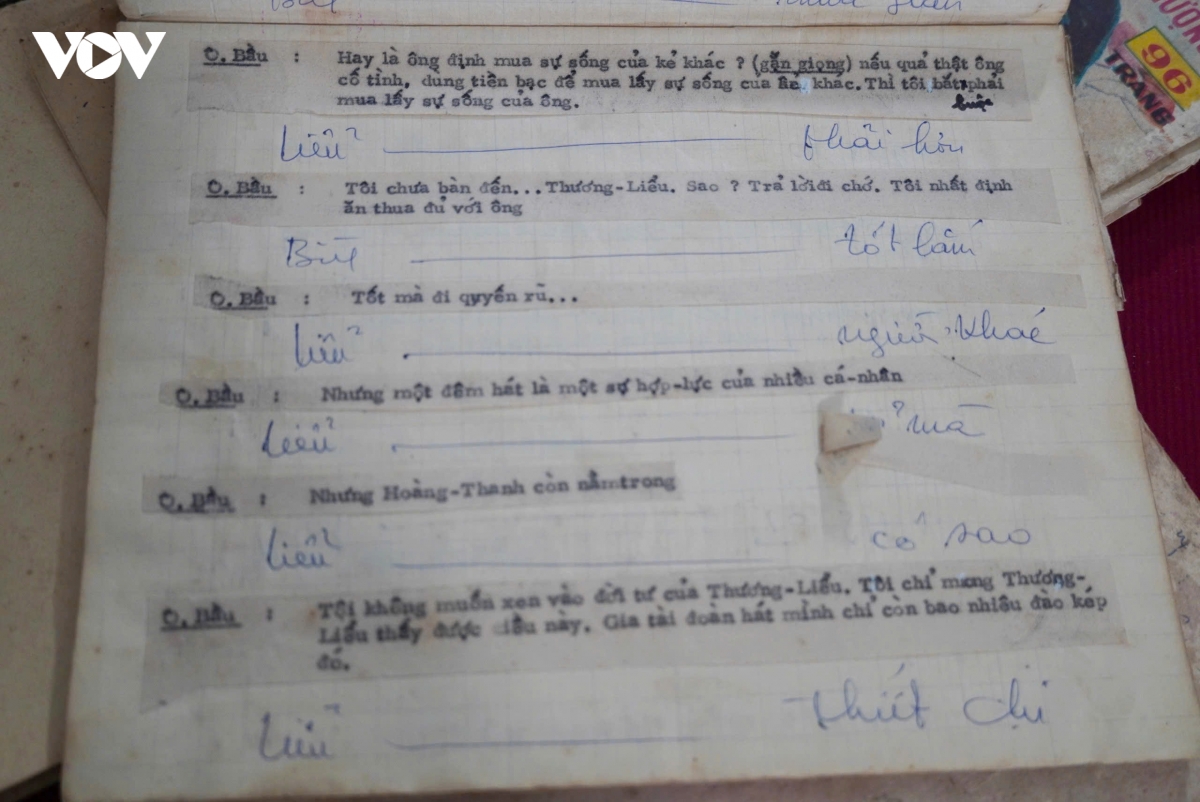 VOV
Ô. Bầu : Hay là ông định mua sự sống của kẻ khác ? (gằn giọng) nếu quả thật ông
cố tình, dung tiền bạc để mua lấy sự sống của kẻ khác. Thì tôi bắt phải
buộc
mua lấy sự sống của ông.
Liễu phải hôn
Ô. Bầu : Tôi chưa bàn đến...Thương-Liễu. Sao ? Trả lờiđi chớ. Tôi nhất định
ăn thua đủ với ông
tốt lắm
Ô. Bầu : Tốt mà đi quyến rũ...
Liễu người khác
Ô. Bầu : Nhưng một đêm hát là một sự hợp-lực của nhiều cá-nhân
Liễu mà
Ô. Bầu : Nhưng Hoàng-Thanh còn nằmtrong
Liễu cô sao
Ô. Bầu : Tôi không muốn xen vào đời tư của Thương-Liễu. Tôi chỉ mong Thương-
Liễu thấy được điều này. Gia tài đoàn hát mình chỉ còn bao nhiêu đào kép
đó.
Liễu thiết chi
96
TRANG